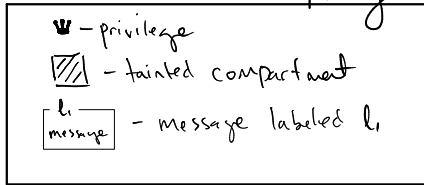 - privilege
- tainted compartment
l₁
message - message labeled l₁